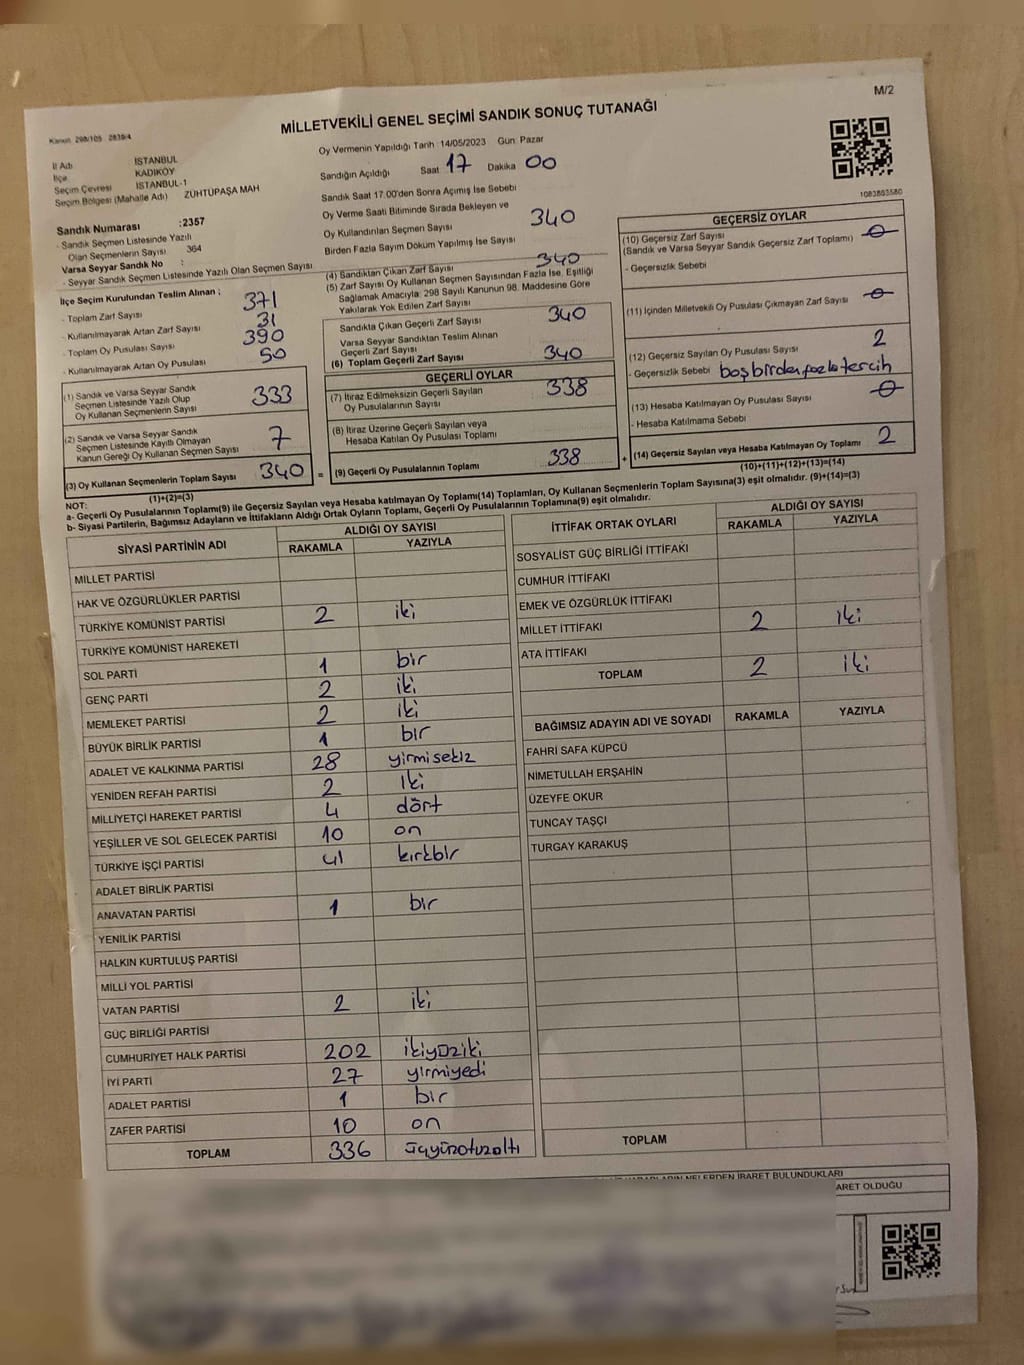 M/2
Kanun: 298/105 2839/4
MİLLETVEKİLİ GENEL SEÇİMİ SANDIK SONUÇ TUTANAĞI
İl Adı İSTANBUL
İlçe KADIKÖY
Seçim Çevresi İSTANBUL-1
Seçim Bölgesi (Mahalle Adı) ZÜHTÜPAŞA MAH
Sandık Numarası :2357
- Sandık Seçmen Listesinde Yazılı
Olan Seçmenlerin Sayısı 364
Varsa Seyyar Sandık No :
- Seyyar Sandık Seçmen Listesinde Yazılı Olan Seçmen Sayısı :
İlçe Seçim Kurulundan Teslim Alınan ;
- Toplam Zarf Sayısı 371
- Kullanılmayarak Artan Zarf Sayısı 31
- Toplam Oy Pusulası Sayısı 390
- Kullanılmayarak Artan Oy Pusulası 50
(1) Sandık ve Varsa Seyyar Sandık
Seçmen Listesinde Yazılı Olup
Oy Kullanan Seçmenlerin Sayısı 333
(2) Sandık ve Varsa Seyyar Sandık
Seçmen Listesinde Kayıtlı Olmayan
Kanun Gereği Oy Kullanan Seçmen Sayısı 7
(3) Oy Kullanan Seçmenlerin Toplam Sayısı 340 =
(1)+(2)=(3)
Oy Vermenin Yapıldığı Tarih : 14/05/2023 Gün: Pazar
Sandığın Açıldığı Saat 17 Dakika 00
Sandık Saat 17.00'den Sonra Açımış İse Sebebi
Oy Verme Saati Bitiminde Sırada Bekleyen ve
Oy Kullandırılan Seçmen Sayısı 340
Birden Fazla Sayım Döküm Yapılmış İse Sayısı
(4) Sandıktan Çıkan Zarf Sayısı 340
(5) Zarf Sayısı Oy Kullanan Seçmen Sayısından Fazla İse, Eşitliği
Sağlamak Amacıyla; 298 Sayılı Kanunun 98. Maddesine Göre
Yakılarak Yok Edilen Zarf Sayısı
Sandıkta Çıkan Geçerli Zarf Sayısı 340
Varsa Seyyar Sandıktan Teslim Alınan
Geçerli Zarf Sayısı
(6) Toplam Geçerli Zarf Sayısı 340
GEÇERLİ OYLAR
(7) İtiraz Edilmeksizin Geçerli Sayılan
Oy Pusulalarının Sayısı 338
(8) İtiraz Üzerine Geçerli Sayılan veya
Hesaba Katılan Oy Pusulası Toplamı
(9) Geçerli Oy Pusulalarının Toplamı 338 +
1083803580
GEÇERSİZ OYLAR
(10) Geçersiz Zarf Sayısı
(Sandık ve Varsa Seyyar Sandık Geçersiz Zarf Toplamı) 0
- Geçersizlik Sebebi
(11) İçinden Milletvekili Oy Pusulası Çıkmayan Zarf Sayısı 0
(12) Geçersiz Sayılan Oy Pusulası Sayısı 2
- Geçersizlik Sebebi boş birden fazla tercih
(13) Hesaba Katılmayan Oy Pusulası Sayısı 0
- Hesaba Katılmama Sebebi
(14) Geçersiz Sayılan veya Hesaba Katılmayan Oy Toplamı 2
(10)+(11)+(12)+(13)=(14)
NOT:
a- Geçerli Oy Pusulalarının Toplamı(9) ile Geçersiz Sayılan veya Hesaba katılmayan Oy Toplamı(14) Toplamları, Oy Kullanan Seçmenlerin Toplam Sayısına(3) eşit olmalıdır. (9)+(14)=(3)
b- Siyasi Partilerin, Bağımsız Adayların ve İttifakların Aldığı Ortak Oyların Toplamı, Geçerli Oy Pusulalarının Toplamına(9) eşit olmalıdır.
SİYASİ PARTİNİN ADI ALDIĞI OY SAYISI
RAKAMLA YAZIYLA
MİLLET PARTİSİ
HAK VE ÖZGÜRLÜKLER PARTİSİ
TÜRKİYE KOMÜNİST PARTİSİ 2 iki
TÜRKİYE KOMÜNİST HAREKETİ
SOL PARTİ 1 bir
GENÇ PARTİ 2 iki
MEMLEKET PARTİSİ 2 iki
BÜYÜK BİRLİK PARTİSİ 1 bir
ADALET VE KALKINMA PARTİSİ 28 yirmisekiz
YENİDEN REFAH PARTİSİ 2 iki
MİLLİYETÇİ HAREKET PARTİSİ 4 dört
YEŞİLLER VE SOL GELECEK PARTİSİ 10 on
TÜRKİYE İŞÇİ PARTİSİ 41 kırkbir
ADALET BİRLİK PARTİSİ
ANAVATAN PARTİSİ 1 bir
YENİLİK PARTİSİ
HALKIN KURTULUŞ PARTİSİ
MİLLİ YOL PARTİSİ
VATAN PARTİSİ 2 iki
GÜÇ BİRLİĞİ PARTİSİ
CUMHURİYET HALK PARTİSİ 202 ikiyüziki
İYİ PARTİ 27 yirmiyedi
ADALET PARTİSİ 1 bir
ZAFER PARTİSİ 10 on
TOPLAM 336 üçyüzotuzaltı
İTTİFAK ORTAK OYLARI ALDIĞI OY SAYISI
RAKAMLA YAZIYLA
SOSYALİST GÜÇ BİRLİĞİ İTTİFAKI
CUMHUR İTTİFAKI
EMEK VE ÖZGÜRLÜK İTTİFAKI
MİLLET İTTİFAKI 2 iki
ATA İTTİFAKI
TOPLAM 2 iki
BAĞIMSIZ ADAYIN ADI VE SOYADI RAKAMLA YAZIYLA
FAHRİ SAFA KÜPCÜ
NİMETULLAH ERŞAHİN
ÜZEYFE OKUR
TUNCAY TAŞÇI
TURGAY KARAKUŞ
TOPLAM
NELERDEN İBARET BULUNDUKLARI
ARET OLDUĞU